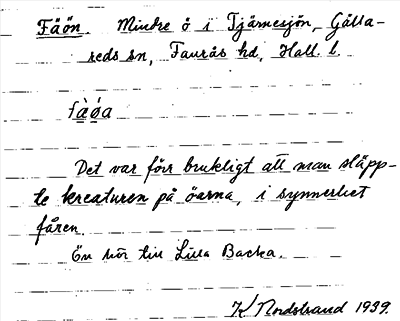 Fåön. Mindre ö i Tjärnesjön, Gälla-
reds sn, Faurås hd, Hall. l.
få̀ǿa
Det var förr brukligt att man släpp-
te kreaturen på öarna, i synnerhet
fåren.
Ön hör till Lilla Backa.
K Nordstrand 1939.